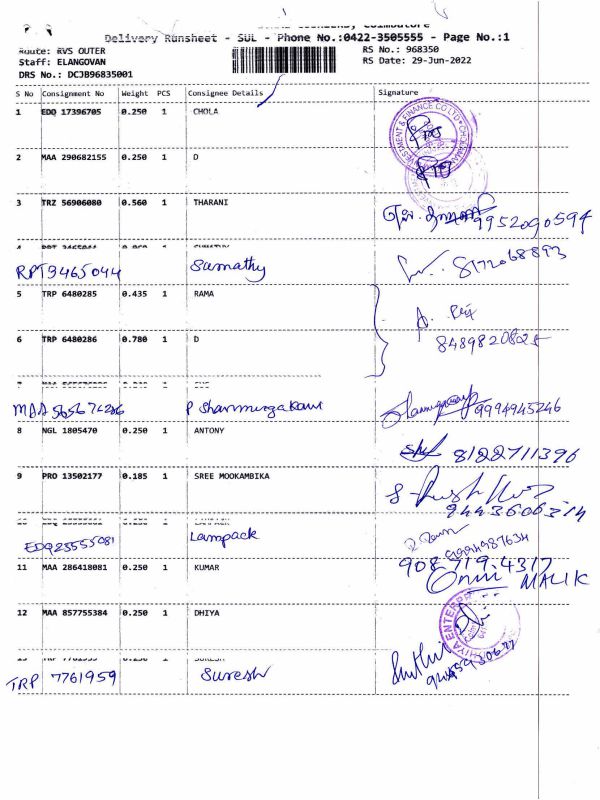 Delivery Runsheet - SUL - Phone No.:0422-3505555 - Page No.:1
Route: RVS OUTER
RS No.: 968350
Staff: ELANGOVAN
RS Date: 29-Jun-2022
DRS No.: DCJB96835001
S No Consignment No Weight PCS Consignee Details Signature
1 EDQ 17396705 0.250 1 CHOLA
2 MAA 290682155 0.250 1 D
3 TRZ 56906080 0.560 1 THARANI
9952090594
RPT9465044 Sumathy 8172068893
5 TRP 6480285 0.435 1 RAMA
6 TRP 6480286 0.780 1 D
8489820825
MAA 565676286 P Shanmugakani 9994945246
8 NGL 1805470 0.250 1 ANTONY
8122711396
9 PRO 13502177 0.185 1 SREE MOOKAMBIKA
EDQ25555081 Lampack 9994987634
11 MAA 286418081 0.250 1 KUMAR
908 719.4317
MALIK
12 MAA 857755384 0.250 1 DHIYA
DHIYA ENTERPR
TRP 7761959 Suresh